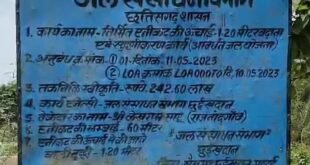 जल संसाधन विभाग
छत्तीसगढ़ शासन
1. कार्य का नाम - निर्मित एनीकट की ऊंचाई 1.20 मीटर बढ़ाना
एवं सुदृढ़ीकरण कार्य (आवर्धन जल योजना)
2. अनुबंध क्र. - 01 - दिनांक 11.05.2023
(2) LOA क्रमांक LOA00T0 10.05.2023
3. तकनीकि स्वीकृति - रुपये 242.60 लाख
4. कार्य एजेन्सी - जल संसाधन संभाग छुईखदान
5. ठेकेदार का नाम - श्री (राजनांदगांव)
6. एनीकट की लम्बाई - 60 मीटर
7. एनीकट की ऊंचाई
1.20 मीटर
"जल संसाधन संभाग"
छुईखदान